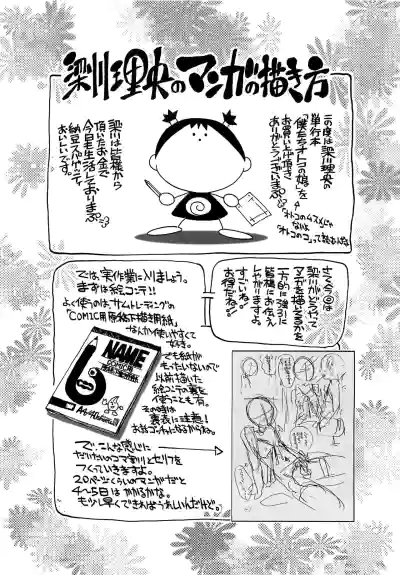 梁川理央のマンガの描き方
この度は梁川理央の
単行本
「僕たちオトコの娘」を
お買い上げ頂き
ありがとうございます。
オトコのムスメじゃ
ないよ
オトコのコって読むんだよ
梁川は皆様から
頂いたお金で
今日も生活しておりまする。
納豆スパゲッティ
おいしいです。
さて今回は
梁川がどうやって
マンガを描いてるかを
一方的に強引に
皆様にお伝え
しやがりますよ。
すごいね!
お得だね!
では、実作業に入りましょう。
まずは絵コンテ!!
よく使うのは、サムトレーディングの
「COMIC用原稿下描き用紙」
なんか使いやすくて
好き。
NAME
でも紙が
もったいないので
以前描いた
絵コンテの裏を
使うことも有。
その時は
裏表に注意!
おおごっちゃになるからね。
で、こんな感じに
だいたいのコマ割りとセリフを
つくっていきますよ。
20ページくらいのマンガだと
4〜5日はかかるかな。
もう少し早くできればうれしいんだけど。